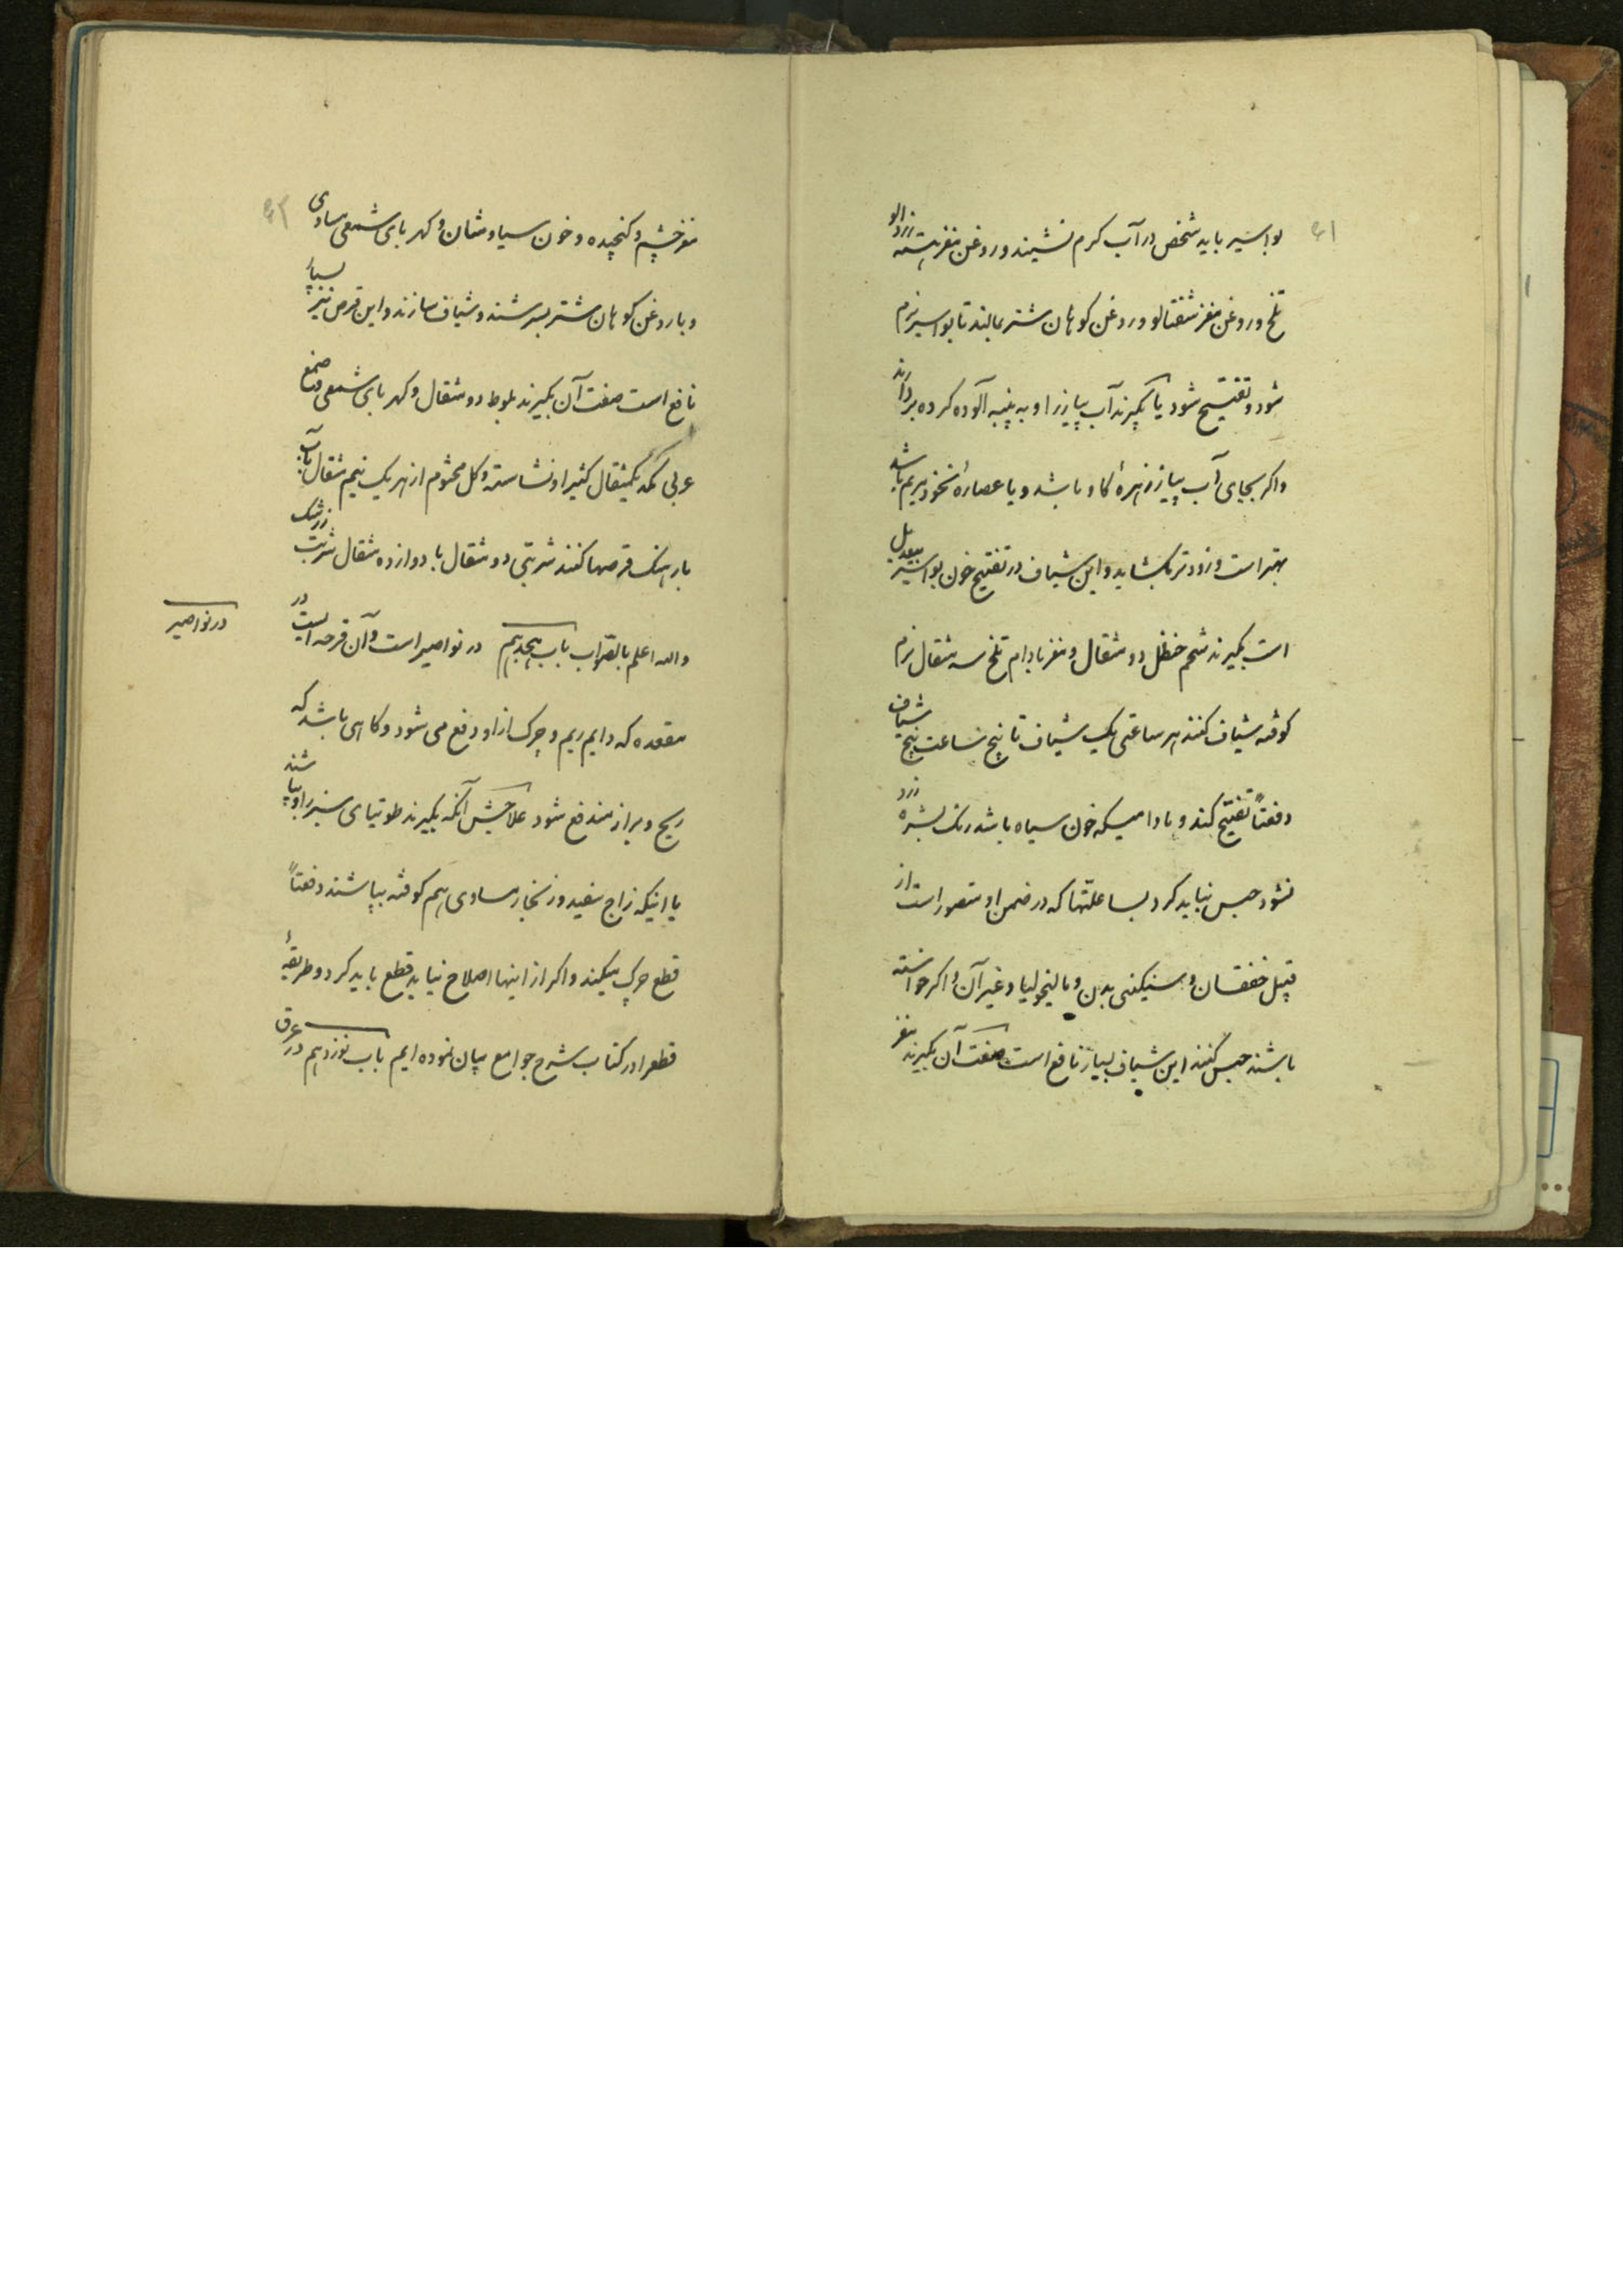 ۶۱
بواسیر باید شخص در آب کرم نشیند و روغن مغز هسته زردالو
تلخ و روغن مغز شفتالو و روغن کوهان شتر بمالند تا بواسیر نرم
شود و تفتیح شود یا بکیرند آب پیاز را و به پنبه آلوده کرده بردارند
و اکر بجای آب پیاز زهرهٔ کاو باشد و یا عصارهٔ بخور مریم باشد
بهتر است و زودتر بکشاید و این شیاف در تفتیح خون بواسیر بیعدیل
است بکیرند شحم حنظل دو مثقال و مغز بادام تلخ سه مثقال نرم
کوفته شیاف کنند هر ساعتی یک شیاف تا پنج ساعت پنج شیاف
دفعتاً تفتیح کند و مادامیکه خون سیاه باشد و رنک بشره زرد
نشود حبس نباید کرد بسا علتها که در ضمن او متصور است از
قبیل خفقان و سنکینی بدن و مالیخولیا و غیر آن و اکر خواسته
باشند حبس کنند این شیاف بسیار نافع است صفت آن بکیرند مغز
۶۲
چشم و کنجیده و خون سیاوشان و کهربای شمعی مساوی
و با روغن کوهان شتر بسرشند و شیاف سازند و این قرص نیز بسیار
نافع است صفت آن بکیرند بلوط دو مثقال و کهربای شمعی و صمغ
عربی یکمثقال کثیرا و نشاسته و کل مختوم از هر یک نیم مثقال بآب
بارهنک قرصها کنند شربتی دو مثقال با دوازده مثقال شربت زرشک
والله اعلم بالصواب باب هیجدهم در نواصیر است و آن قرحه ایست در
در نواصیر
مقعده که دایم ریم و چرک از او دفع می شود و کاهی باشد که
ریح و براز مندفع شود علاجش آنکه بکیرند طوتیای سبز را و بپاشند
یا اینکه زاج سفید و زنخار مساوی هم کوفته بپاشند دفعتاً
قطع چرک میکند و اکر از اینها اصلاح نیابد قطع باید کرد و طریقهٔ
قطعرا در کتاب شرح جوامع بیان نموده ایم باب نوزدهم در عرق